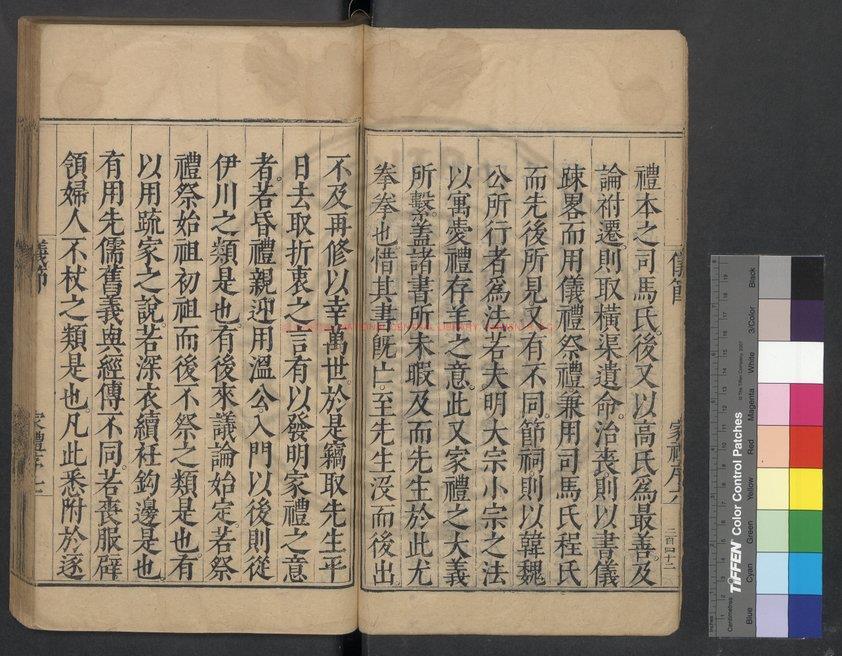 儀節
家禮序六
二百四十二
禮本之司馬氏後又以高氏爲最善及
論祔遷則取橫渠遺命治喪則以書儀
踈畧而用儀禮祭禮兼用司馬氏程氏
而先後所見又有不同節祠則以韓魏
公所行者爲法若夫明大宗小宗之法
以寓愛禮存羊之意此又家禮之大義
所繫蓋諸書所未暇及而先生於此尤
拳拳也惜其書旣亡至先生沒而後出
不及再修以幸萬世於是竊取先生平
日去取折衷之言有以發明家禮之意
者若昏禮親迎用溫公入門以後則從
伊川之類是也有後來議論始定若祭
禮祭始祖初祖而後不祭之類是也有
以用䟽家之說若深衣續衽鈎邊是也
有用先儒舊義與經傳不同若喪服辟
領婦人不杖之類是也凡此悉附於逐
儀節
家禮序七
TIFFEN Color Control Patches
© The Tiffen Company, 2007
Centimetres
Blue
Cyan
Green
Yellow
Red
Magenta
White
3/Color
Black